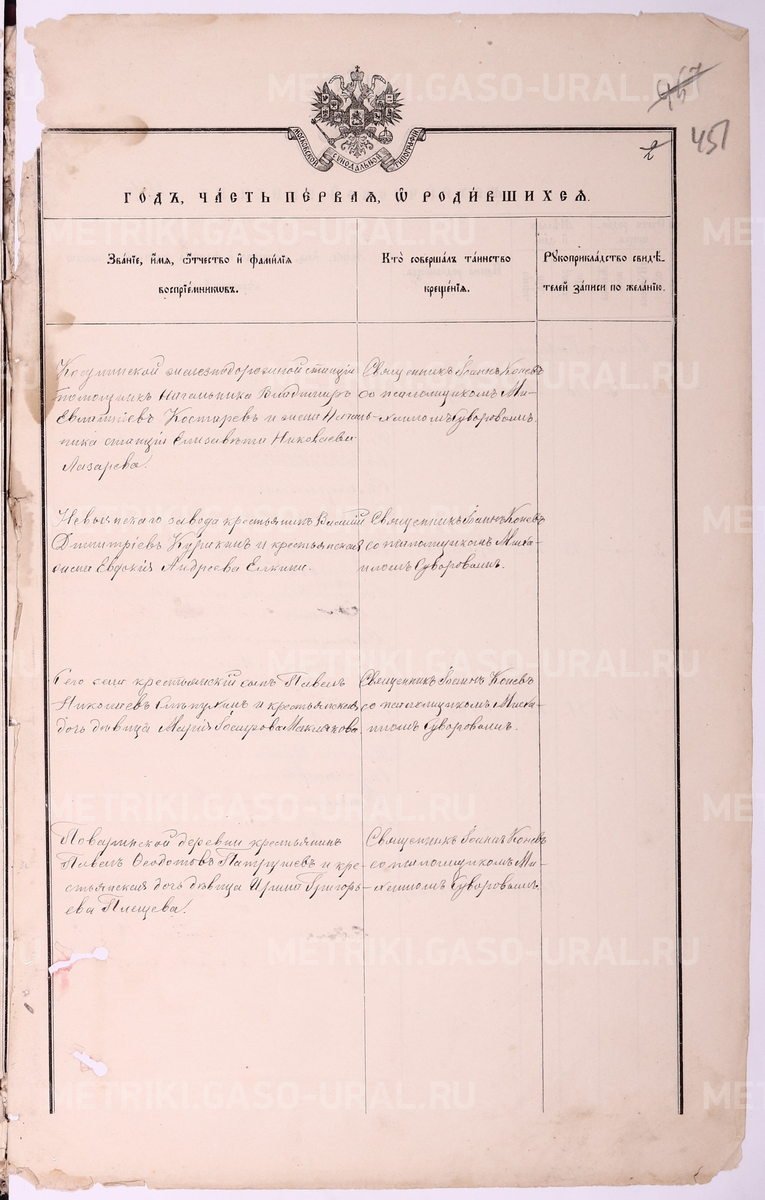 957
451
2
МОСКОВСКОЙ СУНОДАЛЬНОЙ ТИПОГРАФІИ
ГОДЪ, ЧАСТЬ ПЕРВАЯ, Ѡ РОДИВШИХСЯ.
Званіе, имя, ѻтчество и фамилія
воспріемниковъ.
Кто совершалъ таинство
крещенія.
Рукоприкладство свидѣ-
телей записи по желанію.
железнодорожной станціи
помощникъ Начальника Владиміръ
Евлампіевъ Костаревъ и жена Началь-
ника станціи Елизавета Николаева
Лазарева.
Священникъ Іоаннъ Коневъ
со псаломщикомъ Ми-
хаиломъ Суворовымъ.
Невьянскаго завода крестьянинъ Василій
Димитріевъ и крестьянская
жена Евдокія Андреева
Священникъ Іоаннъ Коневъ
со псаломщикомъ Миха-
иломъ Суворовымъ.
Того села крестьянскій сынъ Павелъ
Николаевъ и крестьянская
дочь дѣвица Марія
Священникъ Іоаннъ Коневъ
со псаломщикомъ Миха-
иломъ Суворовымъ.
деревни крестьянинъ
Павелъ Ѳеодотовъ Патрушевъ и кре-
стьянская дочь дѣвица Ирина Григорь-
ева Плещева.
Священникъ Іоаннъ Коневъ
со псаломщикомъ Ми-
хаиломъ Суворовымъ.
METRIKI.GASO-URAL.RU